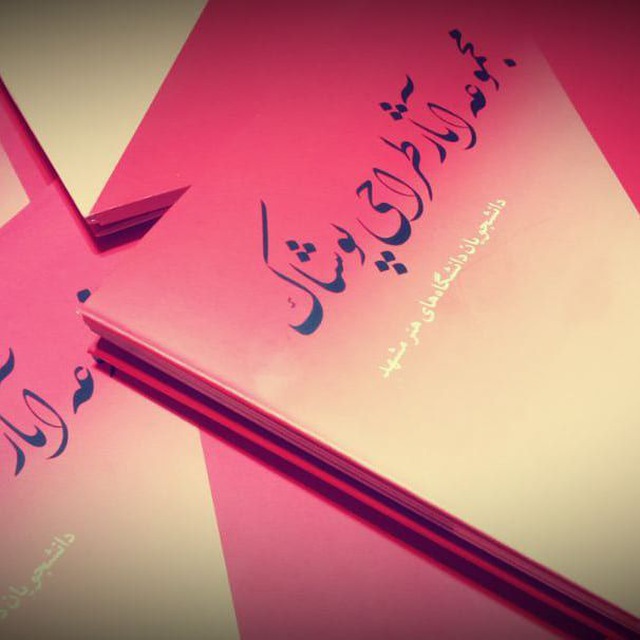 مجموعه آثار طراحی پوشاک
دانشجویان دانشگاه‌های هنر مشهد
عه آثار
دانشجویان د